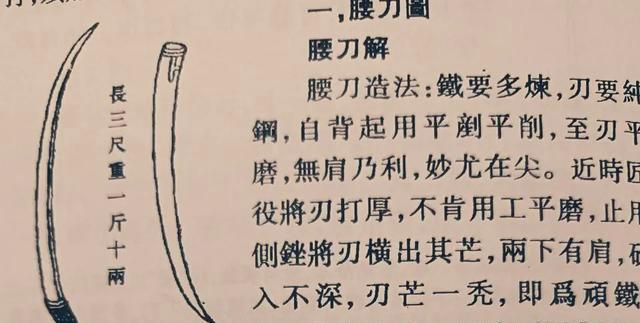 一,腰刀圖
腰刀解
腰刀造法:鐵要多煉,刃要純
鋼,自背起用平剷平削,至刃平
磨,無肩乃利,妙尤在尖。近時匠
役將刃打厚,不肯用工平磨,止用
側銼將刃橫出其芒,兩下有肩,砍
入不深,刃芒一禿,即爲頑鐵
長三尺重一斤十兩